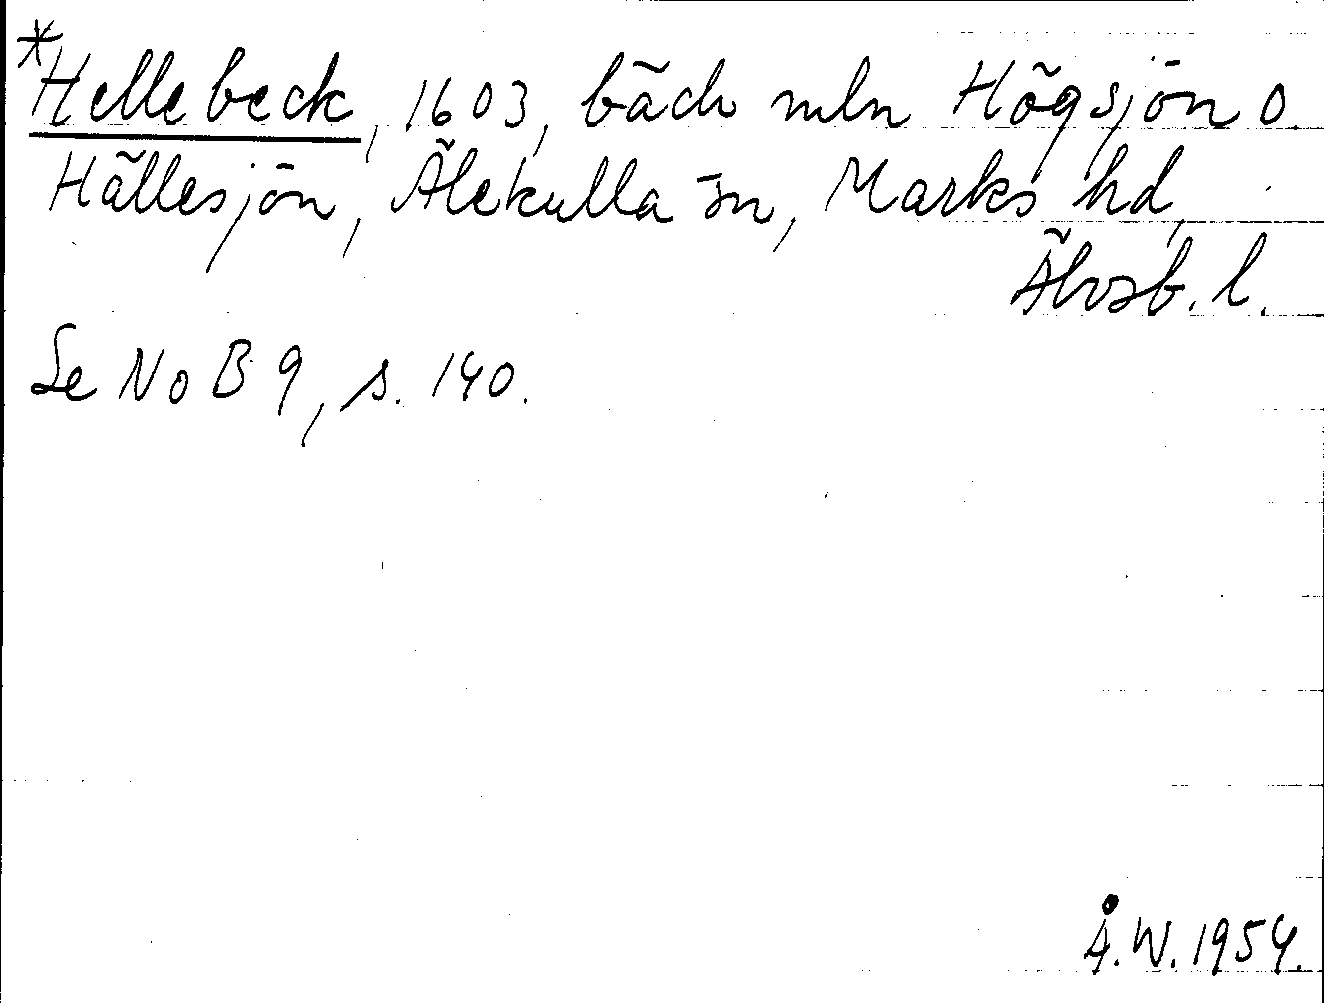 *Hellebeck, 1603, bäck mln Högsjön o.
Hällesjön, Älekulla sn, Marks hd,
Älvsb. l.
Se NoB 9, s. 140.
Å.W. 1954.